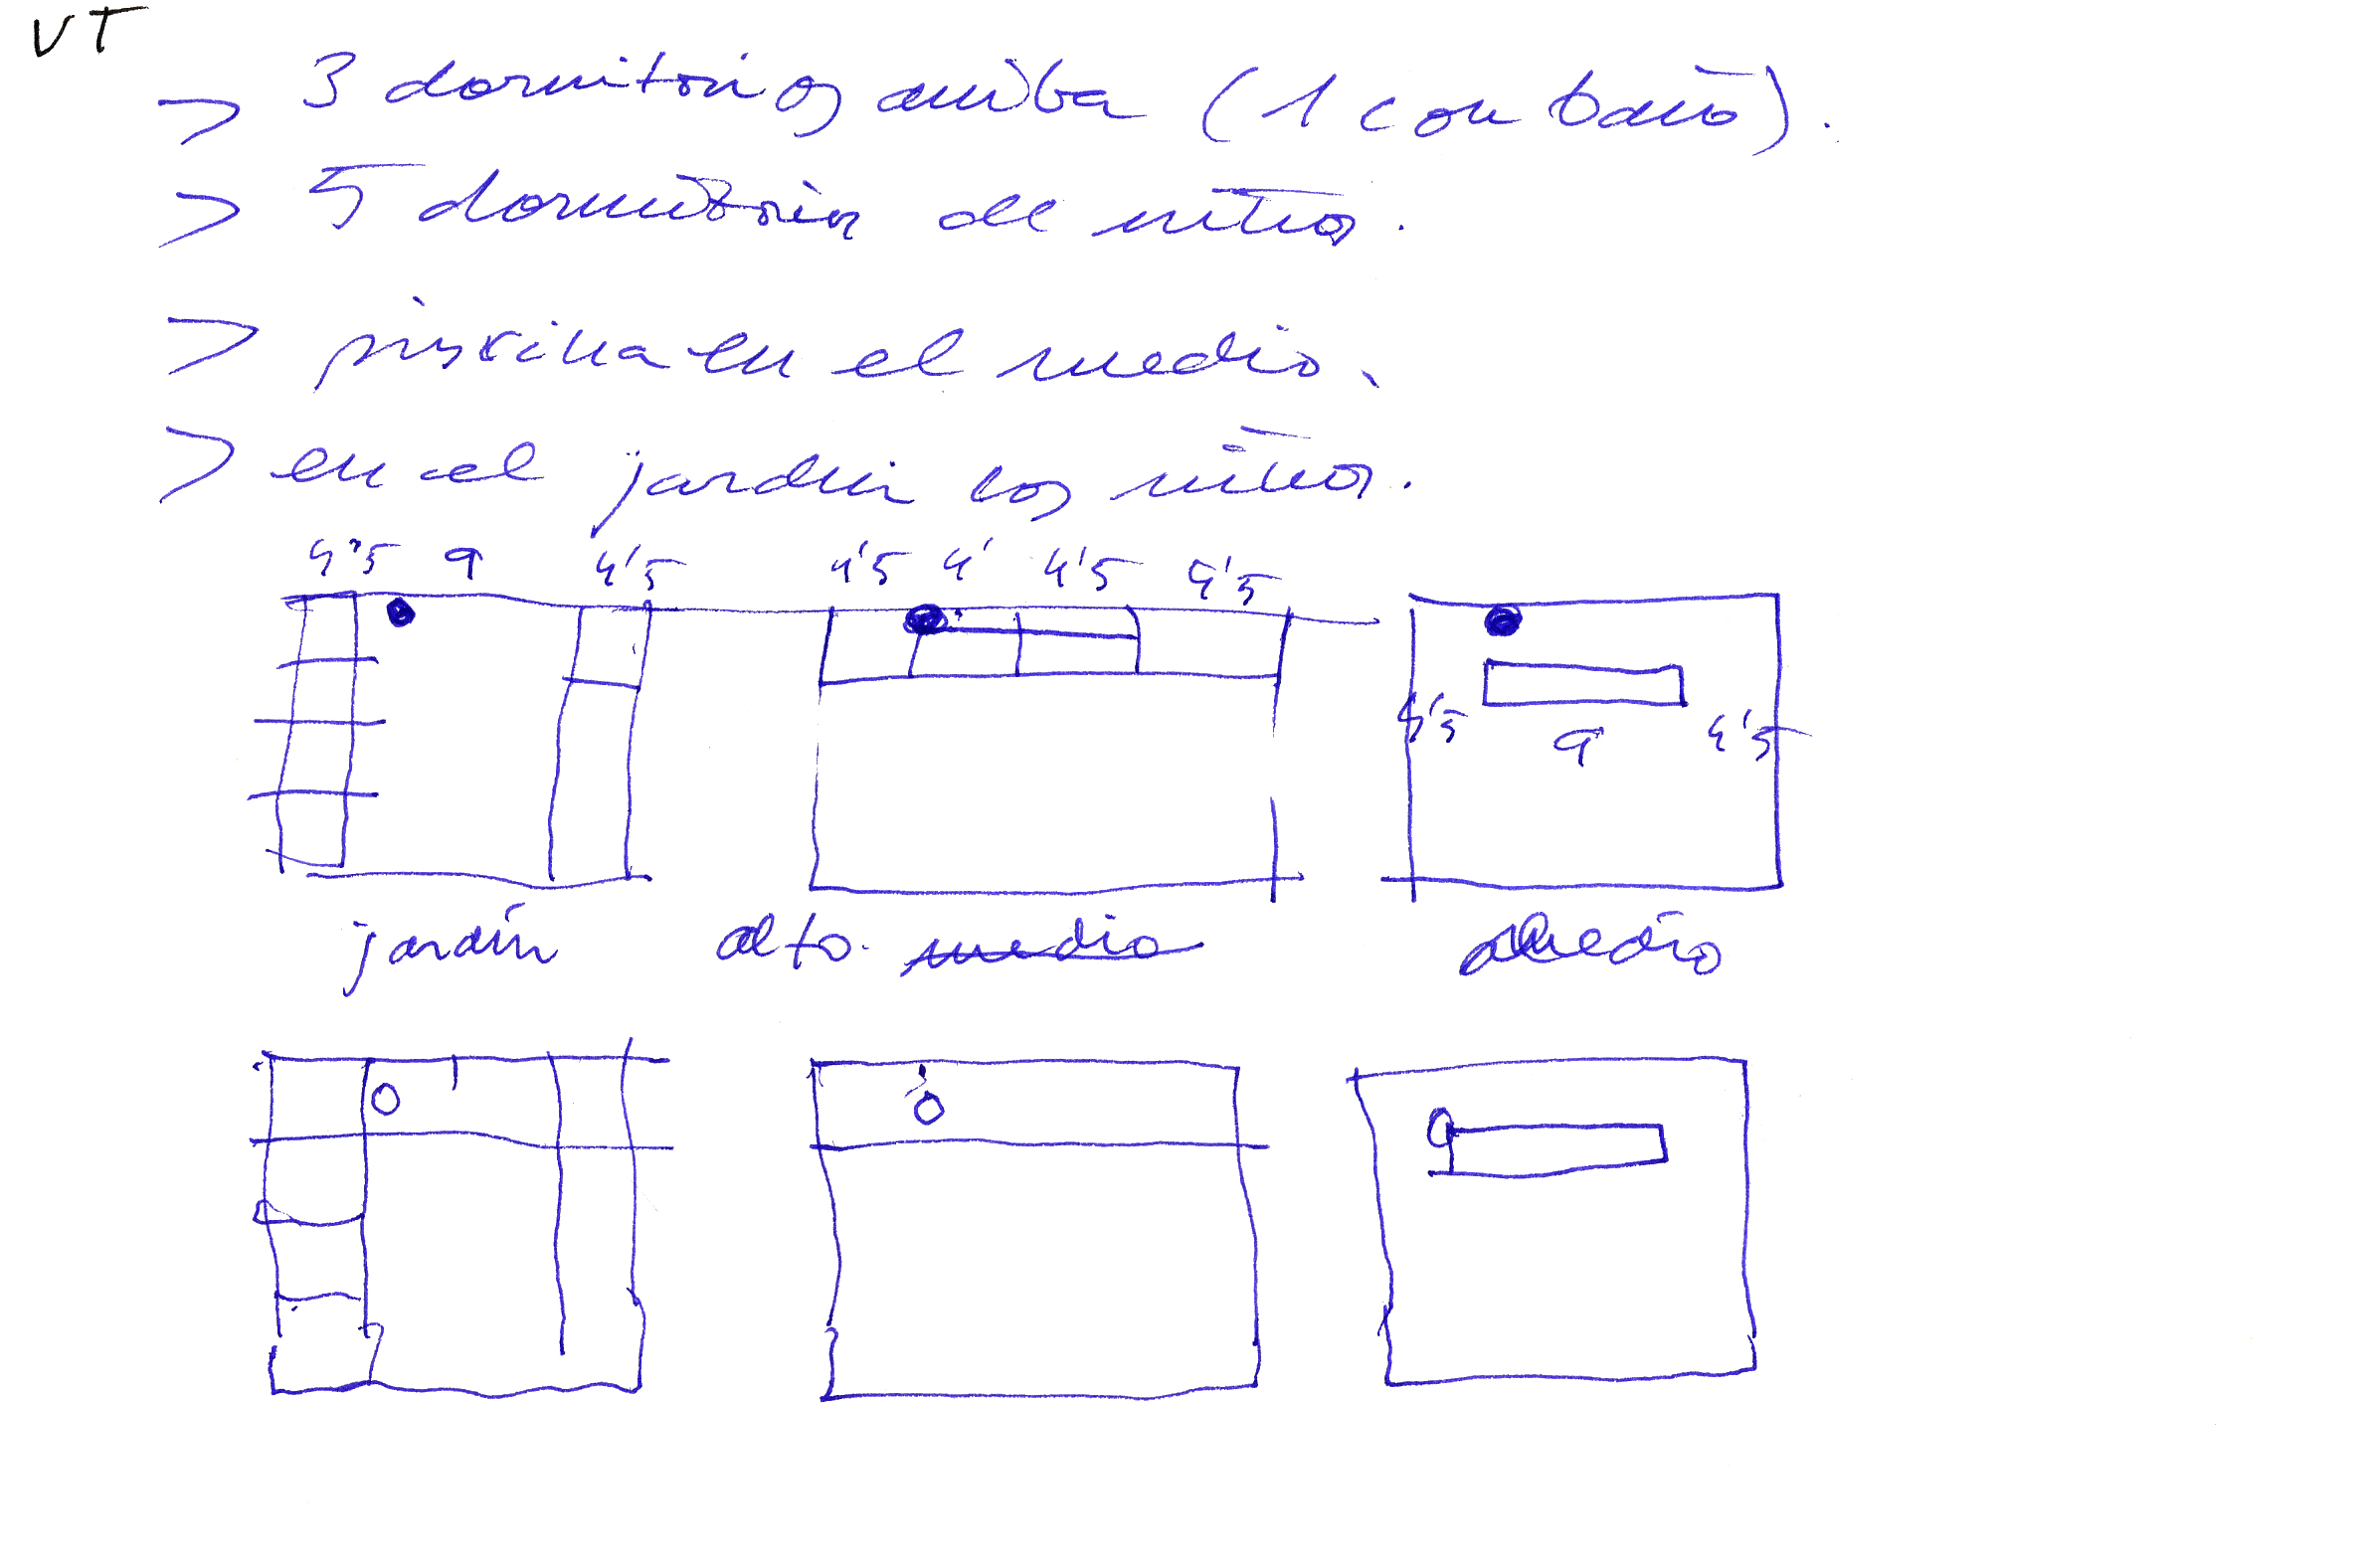 VT
> 3 dormitorios arriba (1 con baño).
> 5 dormitorios de niños.
> piscina en el medio.
> en el jardin los niños.
4'5 9 4'5 4'5 4' 4'5 4'5
4'5 9 4'5
jardín alto. medio medio